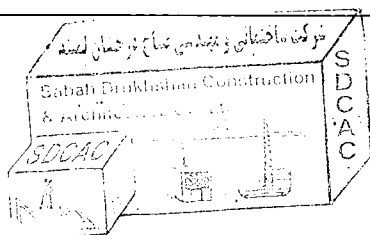 شرکت ساختمانی و مهندسی صباح درخشان لمیتد
Sabah Drukhshan Construction
& Architec
SDCAC
SDCAC